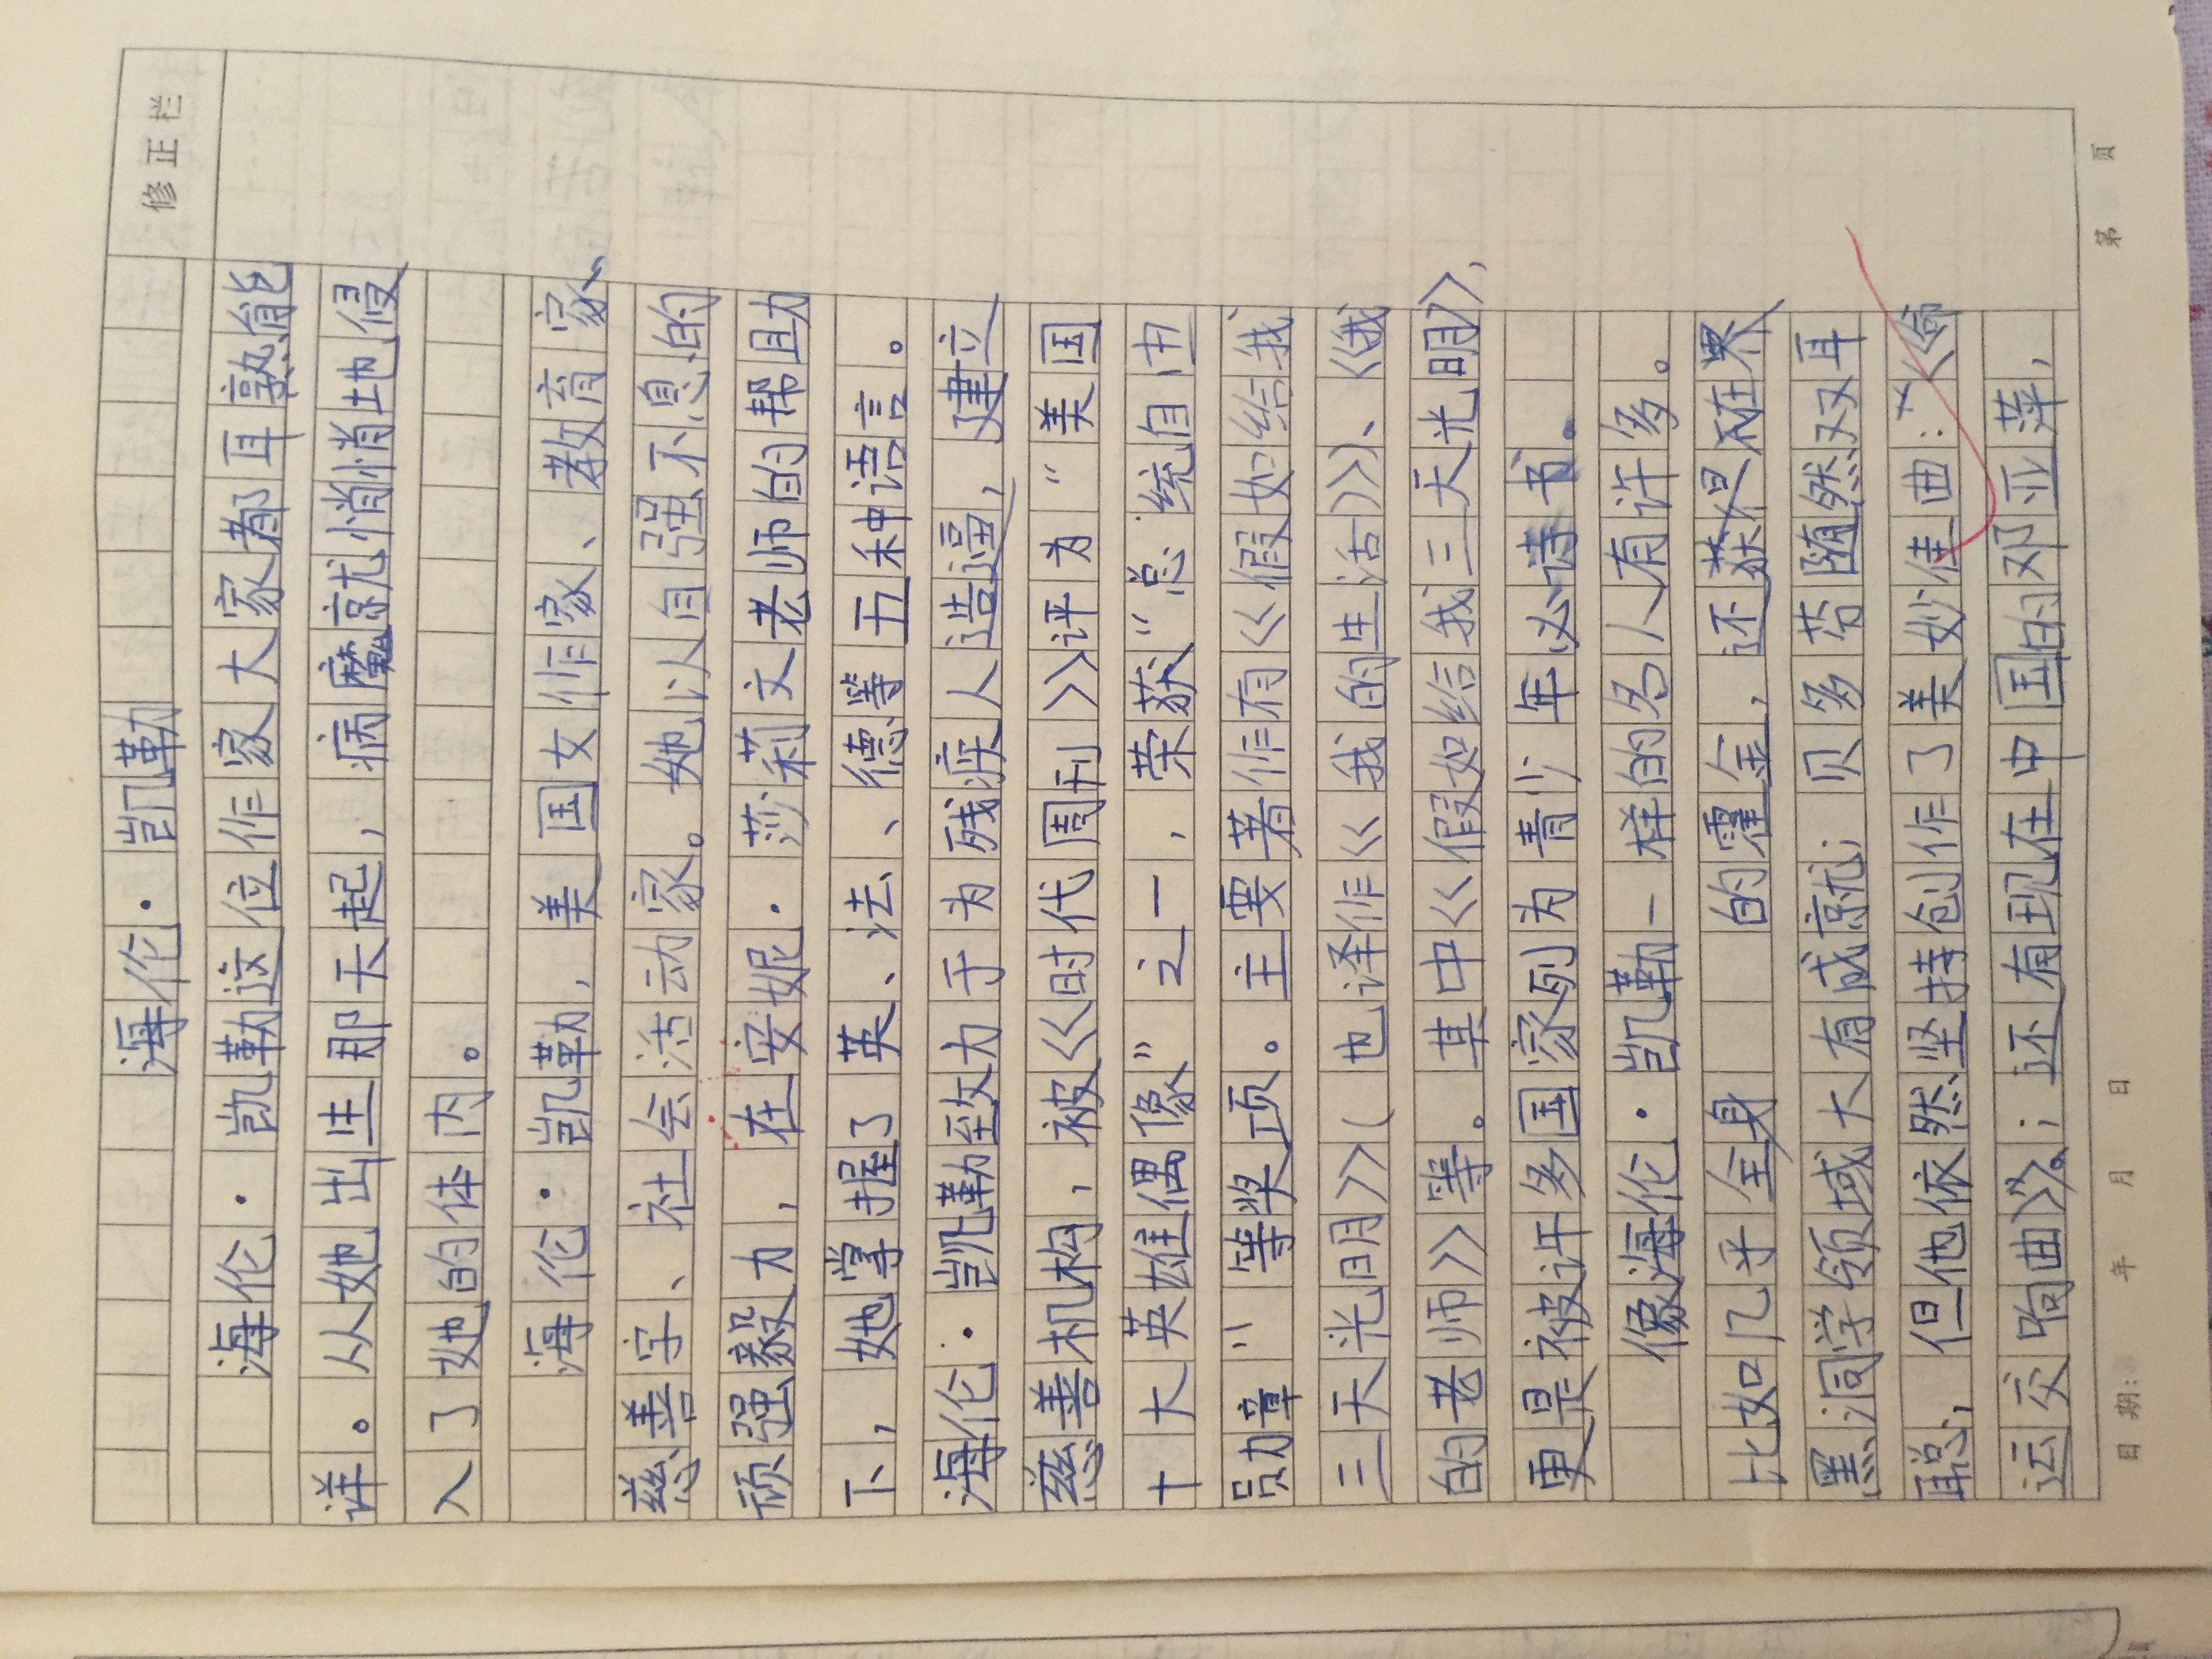 修正栏
海伦·凯勒
海伦·凯勒这位作家大家都耳孰能
详。从她出生那天起，病魔就悄悄地侵
入了她的体内。
海伦·凯勒，美国女作家、教育家、
慈善字、社会活动家。她以自强不息的
顽强毅力，在安妮·莎莉文老师的帮助
下，她掌握了英、法、德等五种语言。
海伦·凯勒致力于为残疾人造逼，建立
慈善机构，被《时代周刊》评为“美国
十大英雄偶像”之一，荣获“总统自由
员力章”等奖项。主要著作有《假如给我
三天光明》（也译作《我的生活》）、《我
的老师》等。其中《假如给我三天光明》，
更是被许多国家列为青少年必读书。
像海伦·凯勒一样的名人有许多。
比如几乎全身的霍金，还获得在界
黑洞学领域大有成就；贝多芬随然双耳
聪，但他依然坚持创作了美妙佳曲：《命
运交响曲》；还有现在中国的邓亚萍，
日期： 年 月 日 第 页